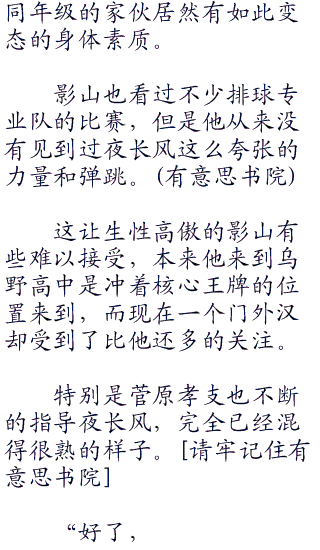 同年级的家伙居然有如此变
态的身体素质。
影山也看过不少排球专
业队的比赛，但是他从来没
有见到过夜长风这么夸张的
力量和弹跳。(有意思书院)
这让生性高傲的影山有
些难以接受，本来他来到乌
野高中是冲着核心王牌的位
置来到，而现在一个门外汉
却受到了比他还多的关注。
特别是菅原孝支也不断
的指导夜长风，完全已经混
得很熟的样子。[请牢记住有
意思书院]
“好了，